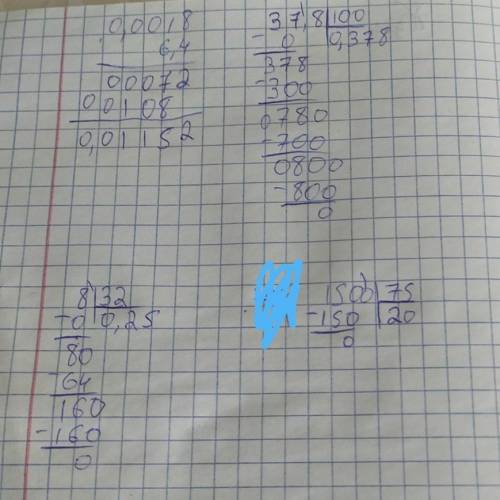 0,0018
6,4
00072
00108
0,01152
37,8 100
- 0 0,378
378
- 300
0780
- 700
0800
- 800
0
8 32
- 0 0,25
80
- 64
160
- 160
0
1500 75
- 150 20
0